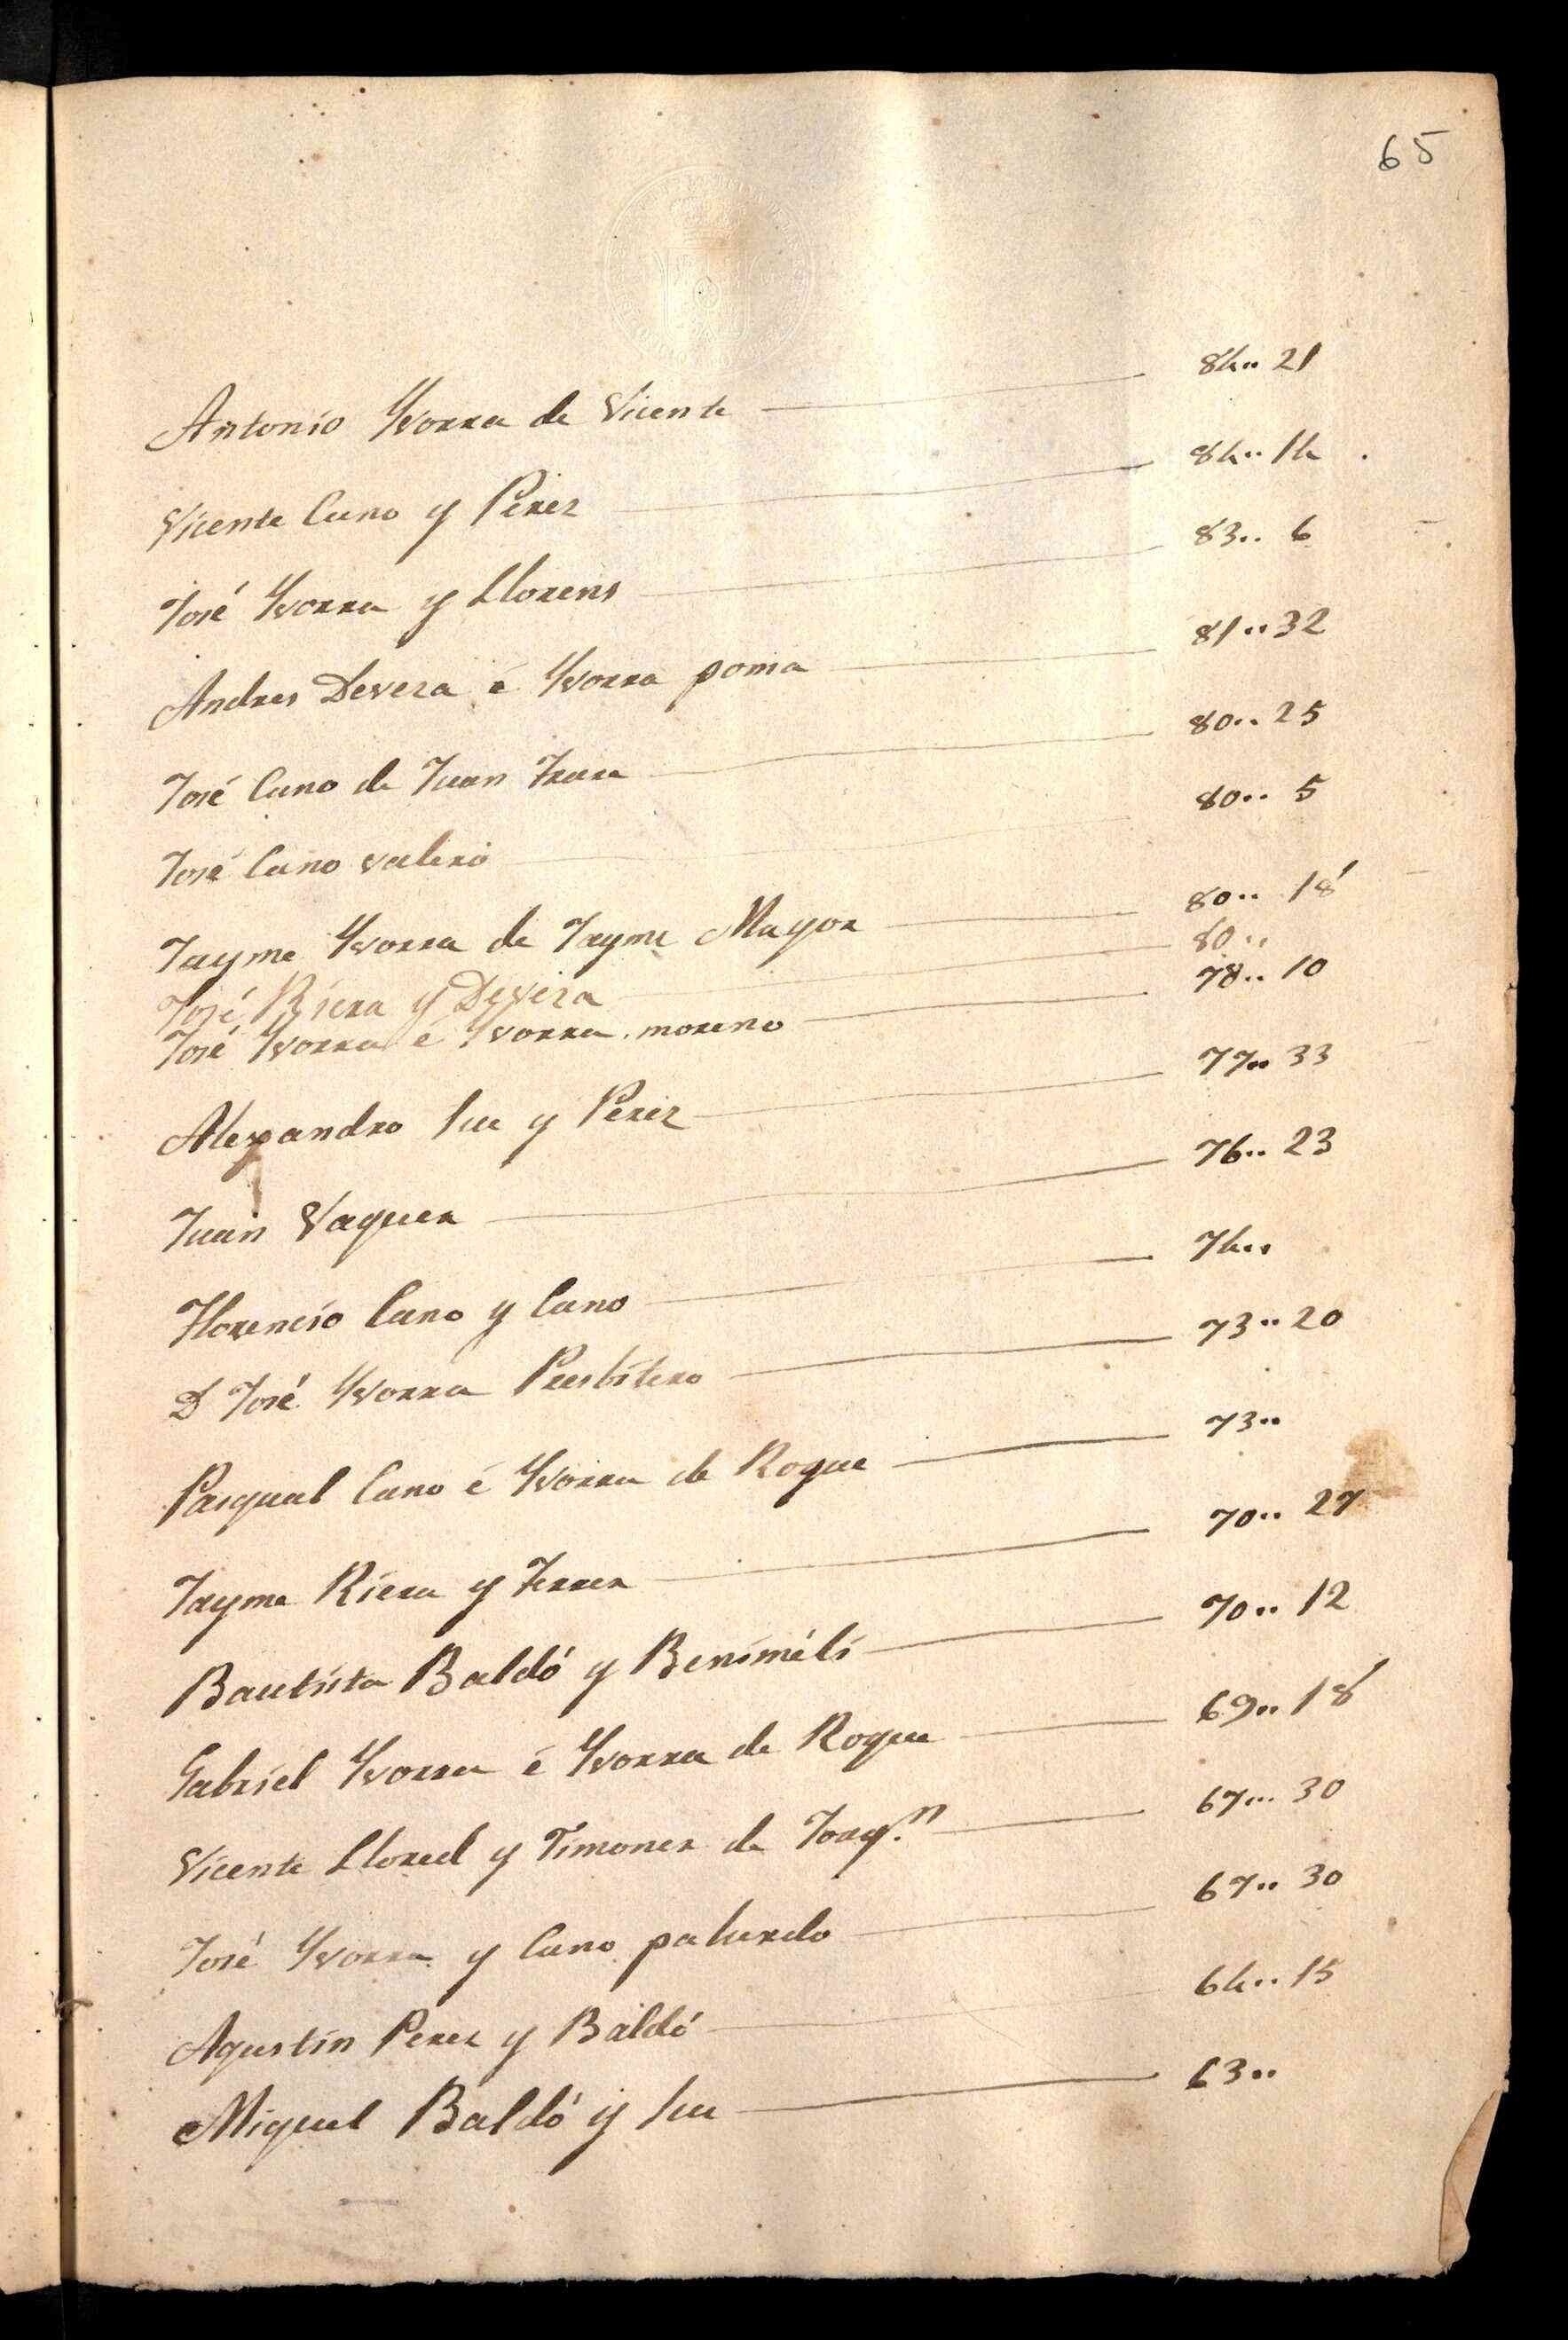 65
Antonio Yvorra de Vicente 84.. 21
Vicente Cano y Perez 84.. 14
José Yvorra y Llorens 83.. 6
Andres Devesa é Yvorra poma 81.. 32
José Cano de Juan Frare 80.. 25
José Cano valero 80.. 5
Jayme Yvorra de Jayme Mayor 80.. 18
José Riera y Devesa 80..
José Yvorra é Yvorra moreno 78.. 10
Alexandro Such y Perez 77.. 33
Juan Vaquer 76.. 23
Florencio Cano y Cano 74..
D José Yvorra Presbitero 73.. 20
Pasqual Cano é Yvorra de Roque 73..
Jayme Riera y Ferrer 70.. 27
Bautista Baldó y Beniméli 70.. 12
Gabriel Yvorra é Yvorra de Roque 69.. 18
Vicente Lloret y Timoner de Joaq.n 67... 30
José Yvorra y Cano 67.. 30
Agustin Perez y Baldó 64.. 15
Miguel Baldó y 63..